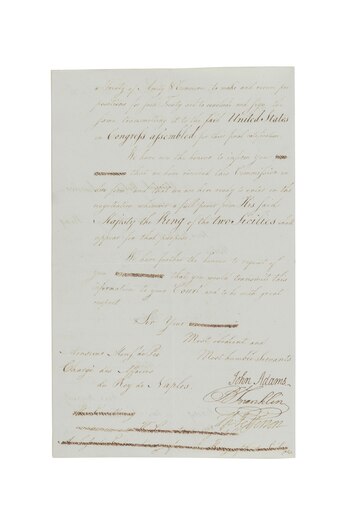 a Treaty of Amity & Commerce to make and receive pro
positions for such Treaty and to conclude and sign the
same transmitting it to the said United States
in Congress assembled for their final ratification.
We have now the honour to inform you
that we have received this Commission in
due form and that we are here ready to enter on the
negotiation whenever a full power from His said
Majesty the King of the two Sicilies shall
appear for that purpose.
We have further the honour to request of
you that you would transmit this
information to your Court and to be with great
respect
Sir Your
Most obedient and
Most humble Servants
Monsieur
Chargé des Affaires
du Roy de Naples.
John Adams
B Franklin
Th Jefferson